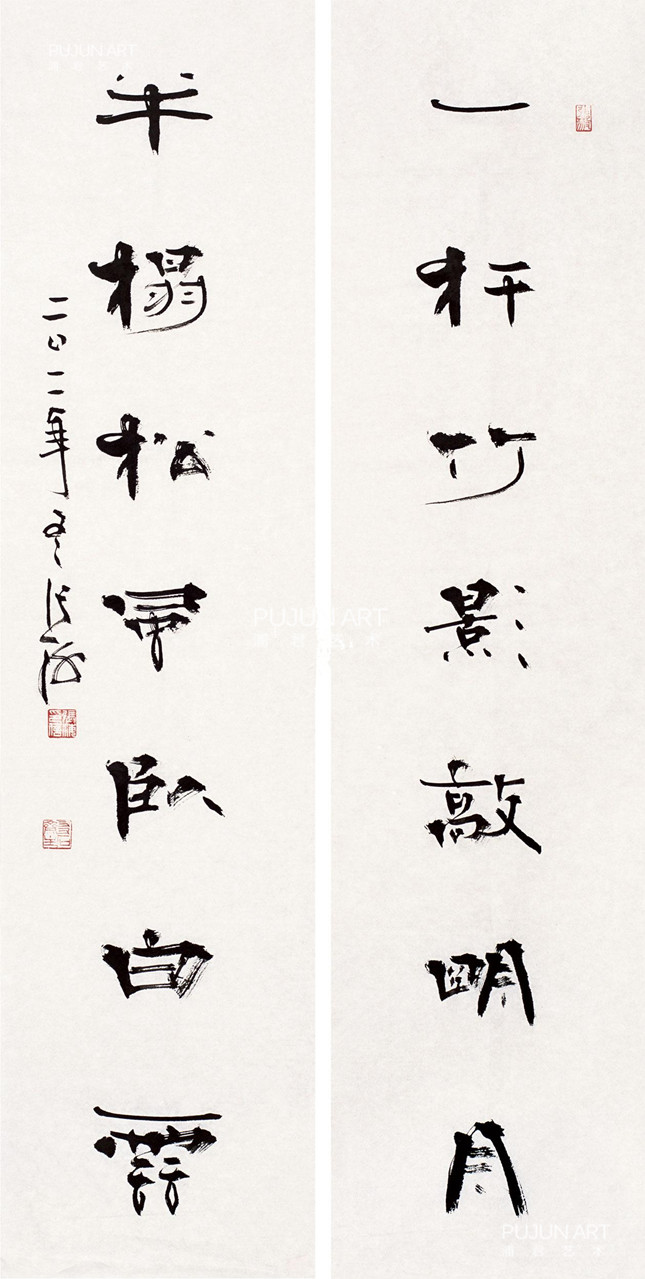 一杆竹影敲明月
半榻松帚臥白雲
二〇一一年冬張海
PUJUN ART
PUJUN ART
PUJUN ART